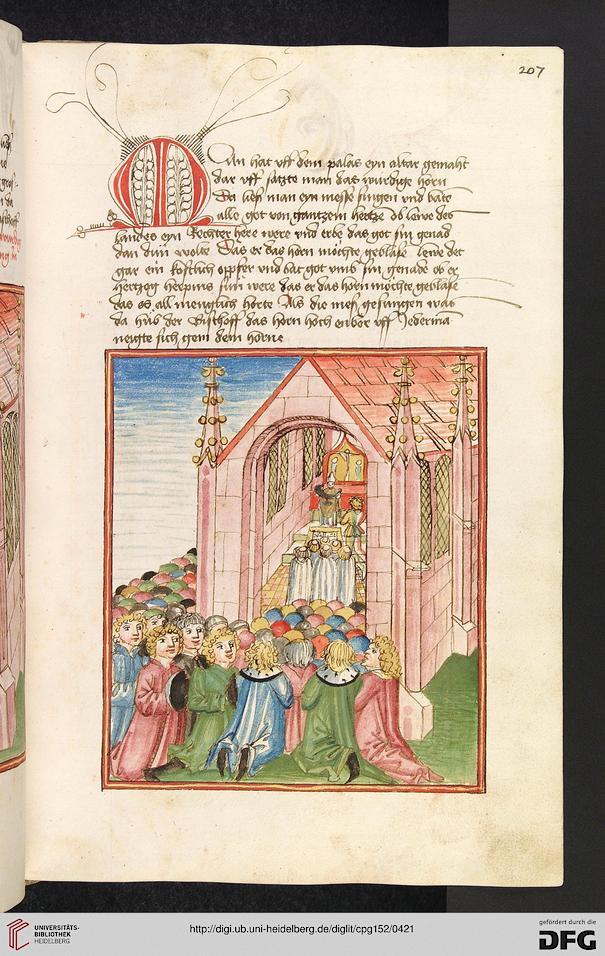 207
Man hat vff dem palas eyn altar gemaht
dar vff satzte man das wurdige horn
Da ließ man eyn messe singen vnd bate
alle got von gantzem hertze ob lewe des
landes eyn Rechter here were vnd erbe das got sin genad
dan dün wolte Das er das horn möchte geblase lewe det
gar ein kostlich opffer vnd bat got vmb sin genade ob er
Hertzog herpins sün were das er das horn möchte geblase
das es all menglich hörte Als die meß gesungen was
da hüb der Bisthoff das horn hoch enbor vff Jederma
neigte sich gein dem horne
UNIVERSITÄTS-
BIBLIOTHEK
HEIDELBERG
http://digi.ub.uni-heidelberg.de/diglit/cpg152/0421
gefördert durch die
DFG